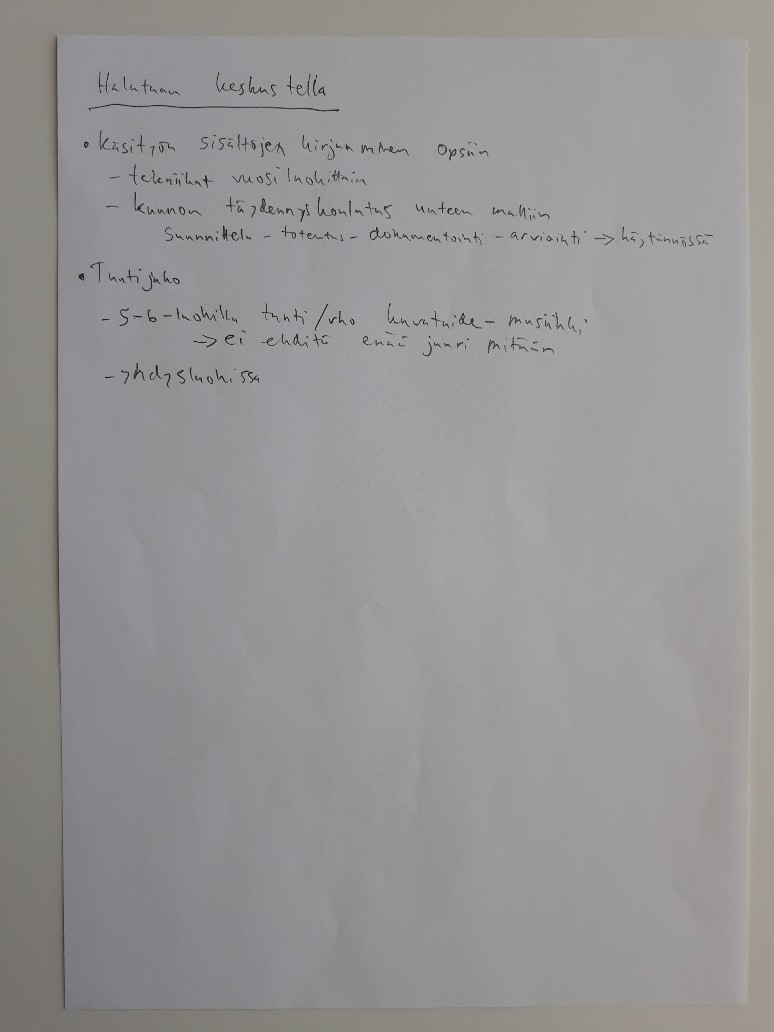 Halutaan keskustella
• Käsityön sisältöjen kirjaaminen opsiin
- tekniikat vuosiluokittain
- kunnon täydennyskoulutus uuteen malliin
suunnittelu - toteutus - dokumentointi - arviointi → käytännössä
• Tuntijako
- 5-6-luokilla tunti/vko kuvataide - musiikki
→ ei ehditä enää juuri mitään
- yhdysluokissa